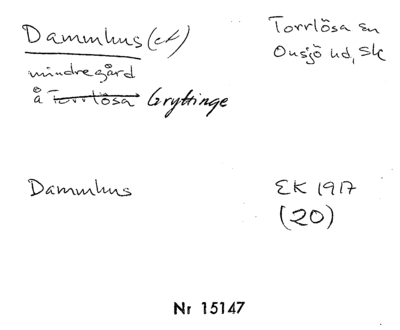 Dammhus (ef)
mindre gård
å Torrlösa Gryttinge
Torrlösa sn
Onsjö hd, Sk
Dammhus
EK 1917
(20)
Nr 15147